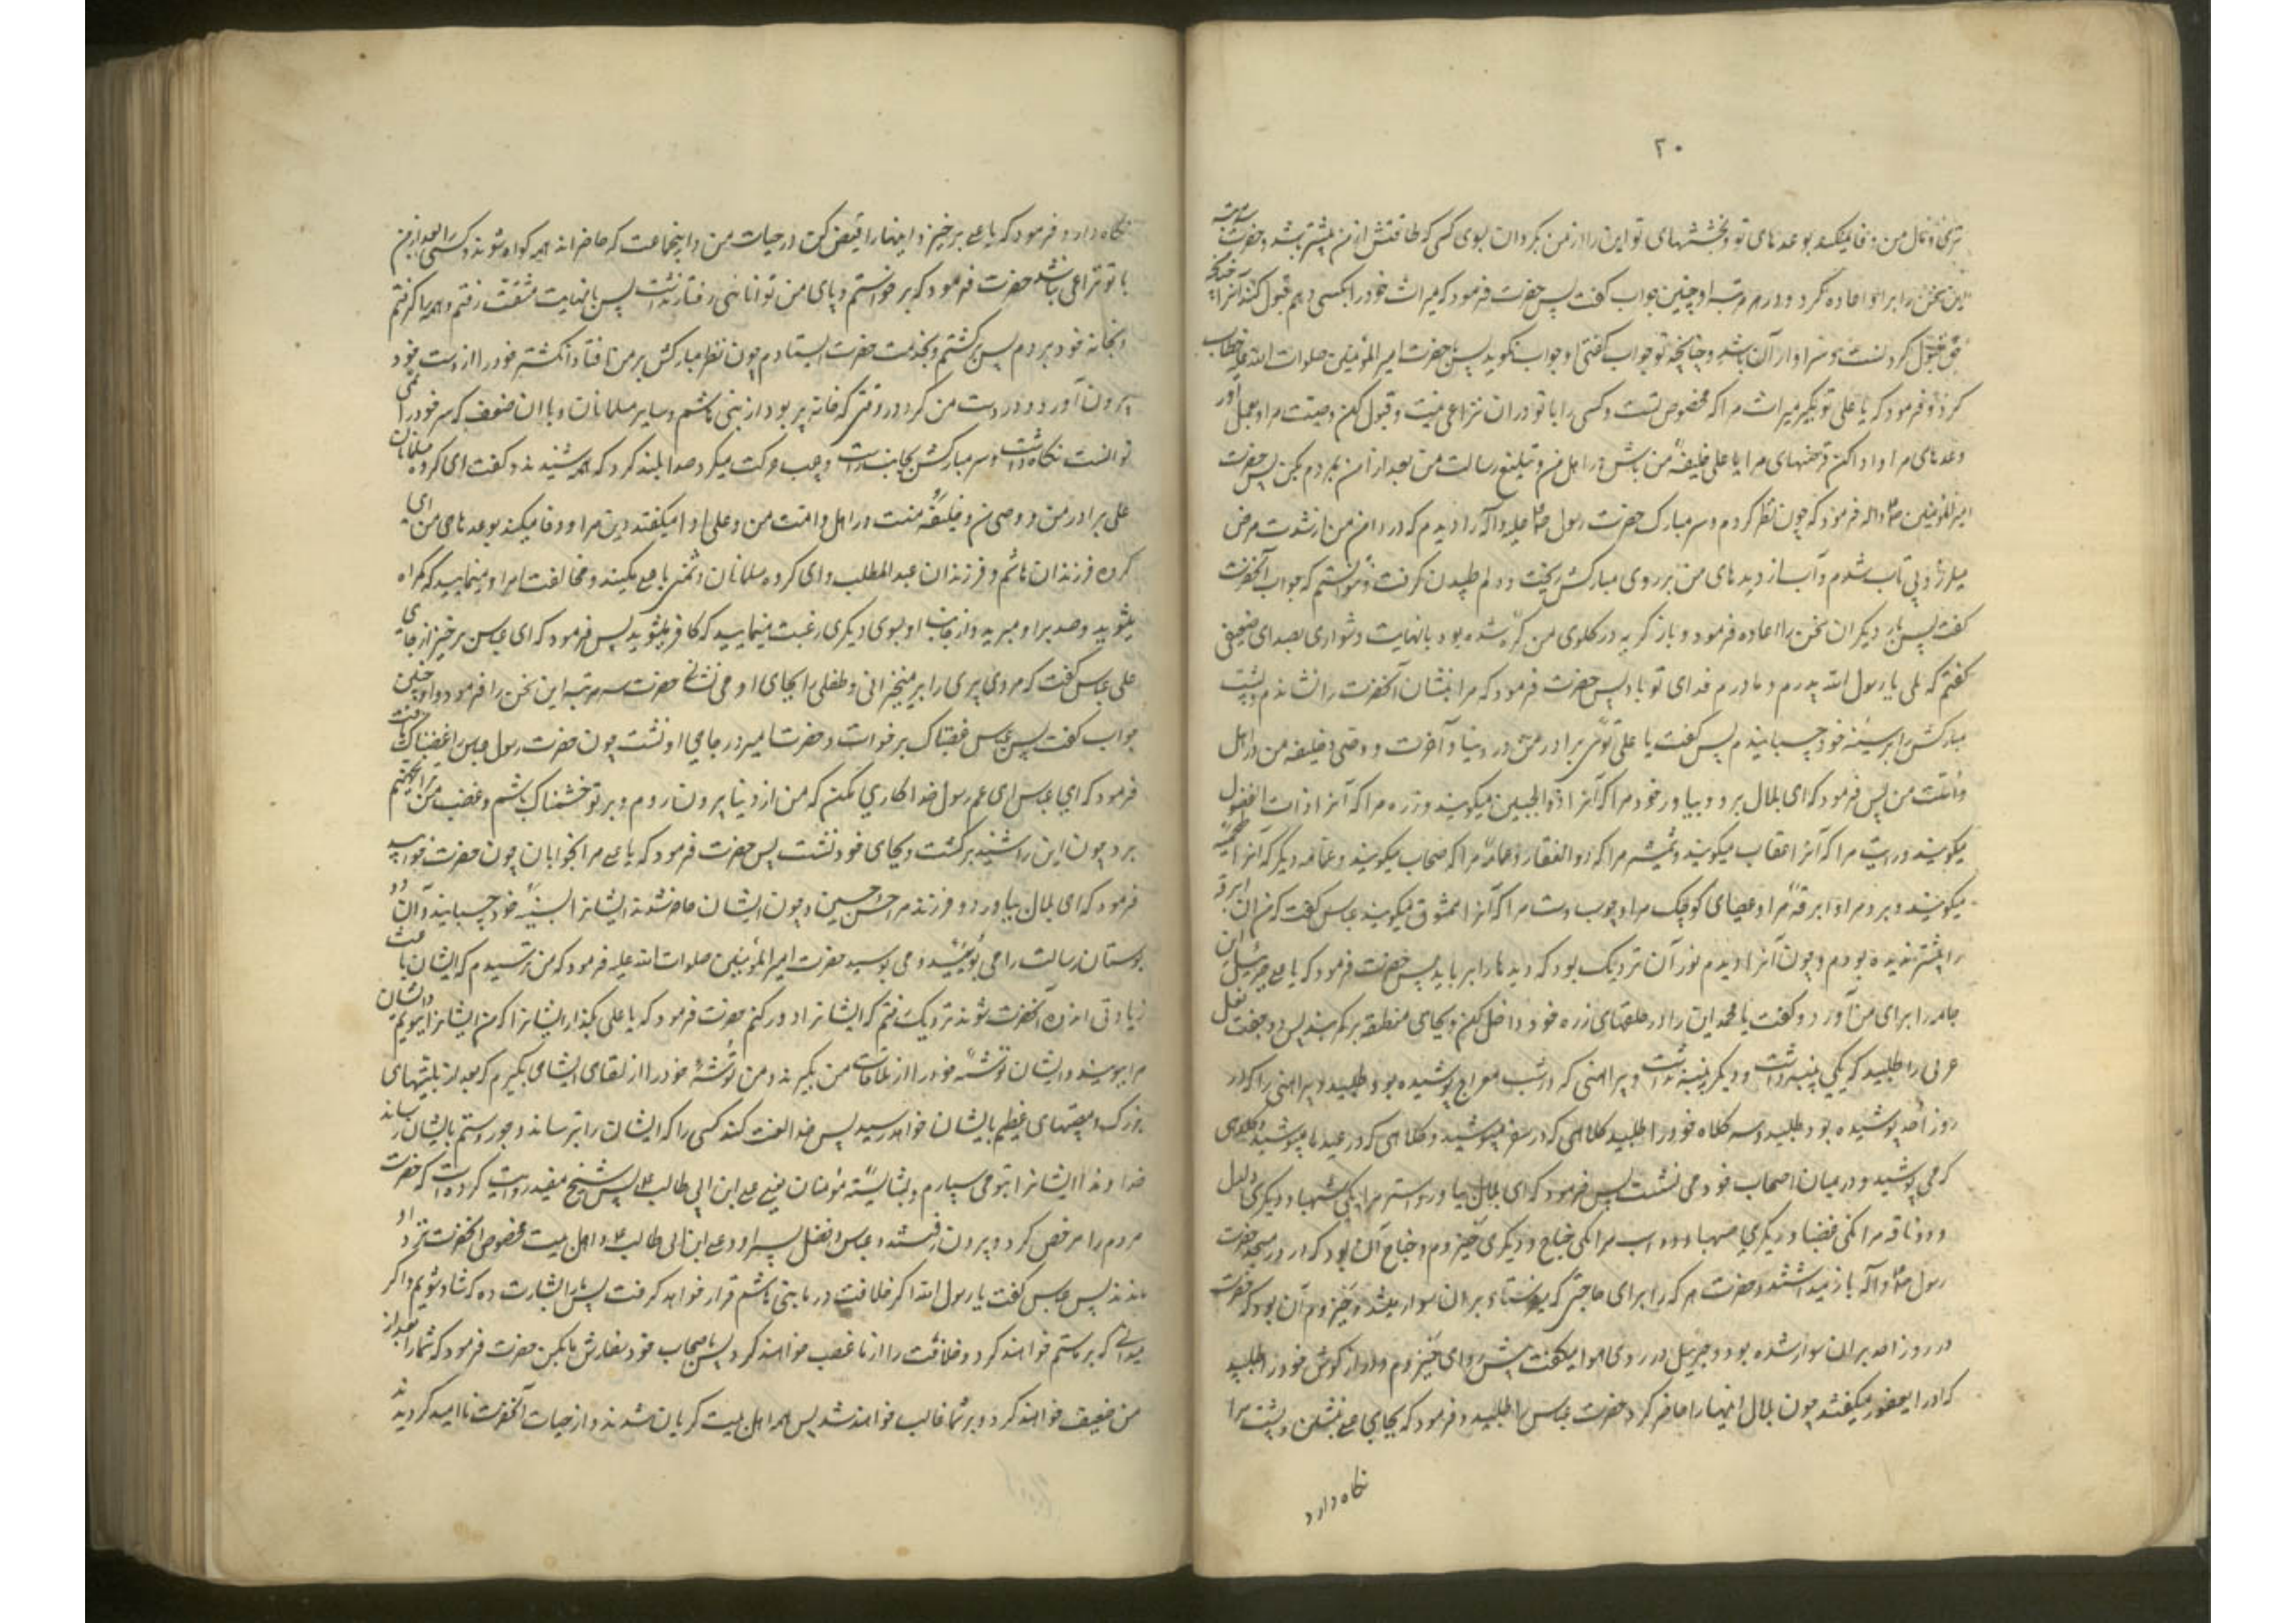 ۲۰
و مال من وفا نمیکند بوعدهای تو و بخششهای تو این را از من بگردان بسوی کسی که طاقتش از من بیشتر باشد و حضرت سه مرتبه
این سخن را بر او اعاده کرد و در هر مرتبه او چنین جواب گفت پس حضرت فرمود که میراث خود را بکسی دهم که قبول کند آنرا چنانکه
حق قبول کردنست و سزاوار آن باشد و چنانچه تو جواب گفتی او جواب نگوید پس حضرت امیر المؤمنین صلوات الله علیه خطاب
کرد و فرمود که یا علی تو بگیر میراث مرا که مخصوص تست و کسی را با تو در ان نزاعی نیست و قبول کن وصیت مرا و بعمل آور
وعدهای مرا و ادا کن قرضهای مرا یا علی خلیفهٔ من باش در اهل من و تبلیغ رسالت من بعد از من بمردم بکن پس حضرت
امیر المؤمنین فرمود که چون نظر کردم و سر مبارک حضرت رسول صلی علیه وآله را دیدم که در دامن من از شدت مرض
میلرزد بی تاب شدم و آب از دیدهای من بر روی مبارکش ریخت و دلم طپیدن گرفت و نتوانستم که جواب آنحضرت
گفت پس بار دیگر ان سخن را اعاده فرمود و باز گریه در گلوی من گره شده بود بانهایت دشواری بصدای ضعیفی
گفتم که بلی یا رسول الله پدرم و مادرم فدای تو باد پس حضرت فرمود که مرا بنشان آنحضرت را نشاندم و پشت
مبارکش را بر سینهٔ خود چسبانیدم پس گفت یا علی توئی برادر من در دنیا و آخرت و وصی و خلیفه من در اهل
و امت من پس فرمود که ای بلال برو و بیاور خود مرا که آنرا ذوالجبین میگویند و زره مرا که آنرا ذات الفضول
میگویند و رایت مرا که آنرا عقاب میگویند و شمشیر مرا که ذو الفقار و عمامهٔ مرا که سحاب میگویند و عمامه دیگر که آنرا
میگویند و برد مرا و ابرقهٔ مرا و عصای کوچک مرا و چوب دست مرا که آنرا ممشوق میگویند عباس گفت که من ان ابرقه
را پیشتر ندیده بودم و چون آنرا دیدم نور آن نزدیک بود که دیدها را برباید پس حضرت فرمود که یا علی جبرئیل این
جامه را برای من آورد و گفت یا محمد این را در حلقهای زره خود داخل کن و بجای منطقه بر کمر بند پس دو جفت نعل
عربی را طلبید که یکی پینه داشت و دیگر پینه نداشت و پیراهنی که در شب معراج پوشیده بود طلبید و پیراهنی را که در
روز احد پوشیده بود طلبید و سه کلاه خود را طلبید کلاهی که در سفر میپوشید و کلاهی که در عیدها میپوشید و کلاهی
که می پوشید و در میان اصحاب خود می نشست پس فرمود که ای بلال بیاور دو استر مرا یکی شهبا و دیگری دلدل
و دو ناقه مرا یکی غضبا و دیگری صهبا و دو اسب مرا یکی جناح و دیگری حیزوم و جناح آن بود که در در مسجد حضرت
رسول وآله باز میداشتند و حضرت هر که را برای حاجتی که میفرستاد بر ان سوار میشد و حیزوم آن بود که حضرت
در روز احد بران سوار شده بود و جبرئیل در روی هوا میگفت پیش رو ای حیزوم و دراز گوش خود را طلبید
که او را یعفور میگفتند چون بلال اینها را حاضر کرد حضرت عباس را طلبید و فرمود که بجای علی بنشین و پشت مرا
نگاه دارد
نگاه دارد و فرمود که یا علی برخیز و اینها را قبض کن در حیات من و اینجماعت که حاضراند همه گواه شوند و کسی را بعد از من
با تو نزاعی نباشد حضرت فرمود که برخواستم و پای من توانائی رفتار نداشت پس بانهایت مشقت رفتم و همه را گرفتم
و بخانه خود بردم پس برگشتم و بخدمت حضرت ایستادم چون نظر مبارکش بر من افتاد انگشتر خود را از دست خود
بیرون آورد و در دست من کرد در وقتی که خانه پر بود از بنی هاشم و سایر مسلمانان و با ان ضعف که سر خود را نمی
توانست نگاه داشت و سر مبارکش بجانب راست و چپ حرکت میکرد صدا بلند کرد که همه شنیدند و گفت ای گروه مسلمانان
علی برادر من و وصی من و خلیفهٔ منست در اهل و امت من و علی ادا میکند دین مرا و وفا میکند بوعدهای من ای
گروه فرزندان هاشم و فرزندان عبد المطلب و ای گروه مسلمانان دشمنی با علی مکنید و مخالفت امر او منمایید که گمراه
میشوید و حسد بر او مبرید و از جانب او بسوی دیگری رغبت منمایید که کافر میشوید پس فرمود که ای عباس برخیز از جای
علی عباس گفت که مرد پیری را بر میخیزانی و طفلی را بجای او می نشانی حضرت سه مرتبه این سخن را فرمود و او چنین
جواب گفت پس عباس غضبناک برخواست و حضرت امیر در جای او نشست چون حضرت رسول عباس را غضبناک یافت
فرمود که ای عباس ای عم رسول خدا کاری مکن که من از دنیا بیرون روم و بر تو خشمناک باشم و غضب من ترا بجهنم
برد چون این را شنید برگشت و بجای خود نشست پس حضرت فرمود که یا علی مرا بخوابان چون حضرت خوابید
فرمود که ای بلال بیاور دو فرزند مرا حسن و حسین و چون ایشان حاضر شدند ایشانرا بسینهٔ خود چسبانید و آن دو
بوستان رسالت را می بوئید و می بوسید حضرت امیر المؤمنین صلوات الله علیه فرمود که من ترسیدم که ایشان باعث
زیادتی آنحضرت شوند نزدیک رفتم که ایشانرا دور کنم حضرت فرمود که یا علی بگذار ایشانرا که من ایشانرا ببویم و ایشان
مرا ببویند و ایشان توشهٔ خود را از ملاقات من بگیرند و من توشهٔ خود را از لقای ایشان بگیرم که بعد از من بلیتهای
بزرگ و مصیبتهای عظیم بایشان خواهد رسید پس خدا لعنت کند کسی را که ایشان را بترساند و جور و ستم بایشان رساند
خداوندا ایشانرا بتو می سپارم و بشایستهٔ مؤمنان یعنی علی ابن ابی طالب پس شیخ مفید روایت کرده است که حضرت
مردم را مرخص کرد و بیرون رفتند و عباس و فضل پسر او و علی ابن ابی طالب و اهل بیت مخصوص آنحضرت نزد او
ماندند پس عباس گفت یا رسول الله اگر خلافت در ما بنی هاشم قرار خواهد گرفت پس ما را بشارت ده که شاد شویم و اگر
میدانی که بر ما ستم خواهند کرد و خلافت را از ما غصب خواهند کرد پس باصحاب خود سفارش ما بکن حضرت فرمود که شما را بعد از
من ضعیف خواهند کرد و بر شما غالب خواهند شد پس همه اهل بیت گریان شدند و از حیات آنحضرت ناامید گردیدند